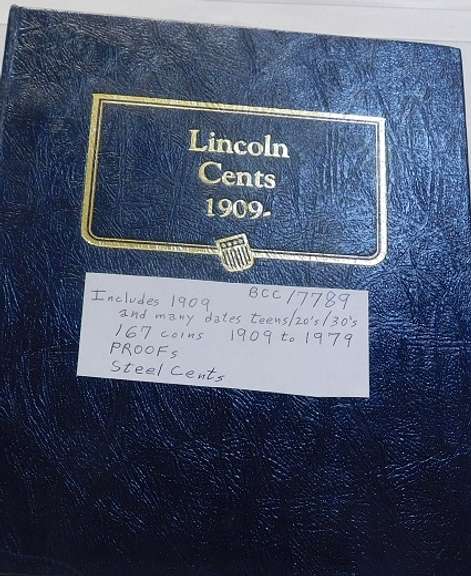 Lincoln
Cents
1909-
Includes 1909 BCC 17789
and many dates teens/20's/30's
167 coins 1909 to 1979
PROOFs
Steel Cents